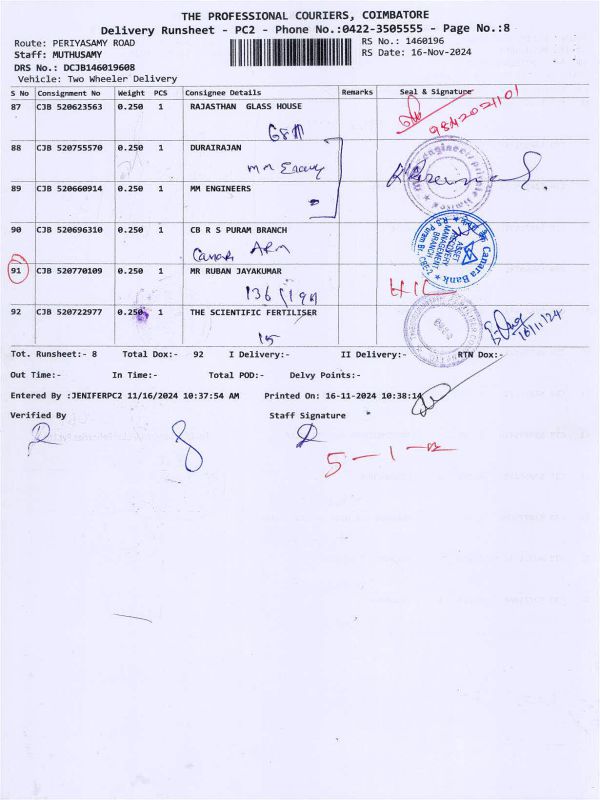 THE PROFESSIONAL COURIERS, COIMBATORE
Delivery Runsheet - PC2 - Phone No.:0422-3505555 - Page No.:8
Route: PERIYASAMY ROAD
RS No.: 1460196
Staff: MUTHUSAMY
RS Date: 16-Nov-2024
DRS No.: DCJB146019608
Vehicle: Two Wheeler Delivery
S No Consignment No Weight PCS Consignee Details Remarks Seal & Signature
87 CJB 520623563 0.250 1 RAJASTHAN GLASS HOUSE
88 CJB 520755570 0.250 1 DURAIRAJAN
89 CJB 520660914 0.250 1 MM ENGINEERS
90 CJB 520696310 0.250 1 CB R S PURAM BRANCH
Canara
Canara Bank
ASSET
RECOVERY
MANAGEMENT
BRANCH
91 CJB 520770109 0.250 1 MR RUBAN JAYAKUMAR
92 CJB 520722977 0.250 1 THE SCIENTIFIC FERTILISER
15
16/11/24
Tot. Runsheet:- 8 Total Dox:- 92 I Delivery:- II Delivery:- RTN Dox:-
Out Time:- In Time:- Total POD:- Delvy Points:-
Entered By :JENIFERPC2 11/16/2024 10:37:54 AM Printed On: 16-11-2024 10:38:14
Verified By Staff Signature